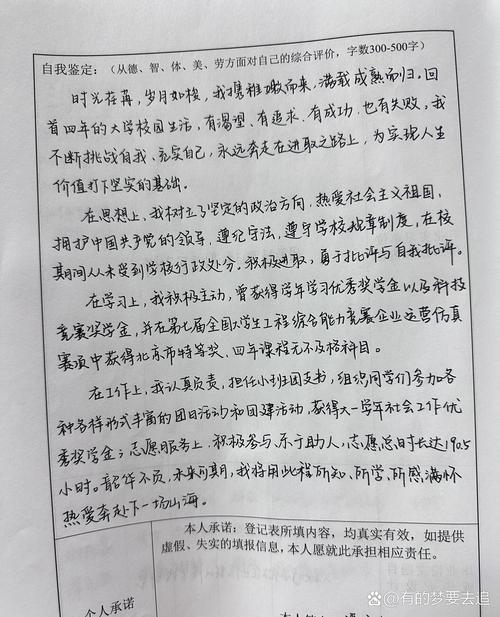 自我鉴定：（从德、智、体、美、劳方面对自己的综合评价，字数300-500字）
时光荏苒，岁月如梭，我携稚嫩而来，满载成熟而归。回
首四年的大学校园生活，有渴望、有追求、有成功、也有失败，我
不断挑战自我、充实自己，永远奔走在进取之路上，为实现人生
价值打下坚实的基础。
在思想上，我树立了坚定的政治方向，热爱社会主义祖国，
拥护中国共产党的领导，遵纪守法，遵守学校规章制度，在校
期间从未受到学校行政处分。积极进取，勇于批评与自我批评。
在学习上，我积极主动，曾获得学年学习优秀奖学金以及科技
竞赛奖学金，并在第七届全国大学生工程综合能力竞赛企业运营仿真
赛项中获得北京市特等奖、四年课程无不及格科目。
在工作上，我认真负责，担任小班团支书，组织同学们参加各
种各样形式丰富的团日活动和团建活动，获得大一学年社会工作优
秀奖学金；志愿服务上，积极参与、乐于助人，志愿总时长达190.5
小时。韶华不负，未来可期，我将用此程所知、所学、所感满怀
热爱奔赴下一场山海。
本人承诺：登记表所填内容，均真实有效，如提供
虚假、失实的填报信息，本人愿就此承担相应责任。
个人承诺
@有的梦要去追